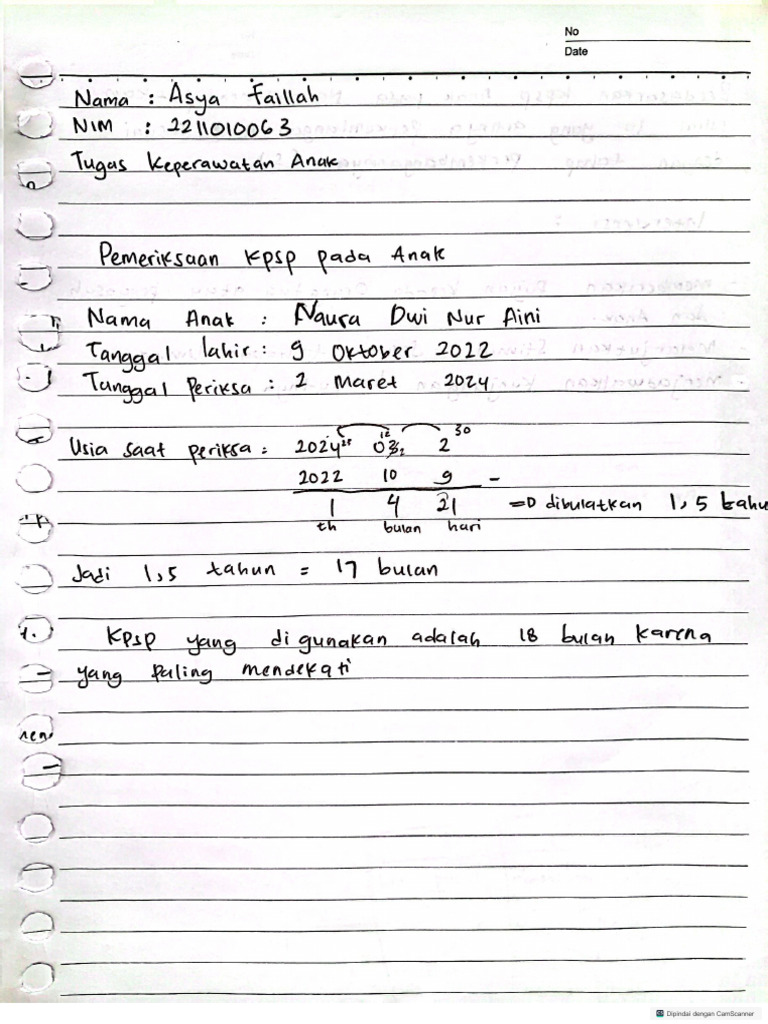 No
Date
Nama : Asya Faillah
NIM : 2211010063
Tugas Keperawatan Anak
Pemeriksaan KPSP pada Anak
Nama Anak : Naura Dwi Nur Aini
Tanggal lahir : 9 Oktober 2022
Tanggal periksa : 2 Maret 2024
12 30
Usia saat periksa : 2024 03 2
2022 10 9 -
1 4 21 => dibulatkan 1,5 tahu
th bulan hari
Jadi 1,5 tahun = 17 bulan
KPSP yang digunakan adalah 18 bulan karena
yang paling mendekati
Dipindai dengan CamScanner